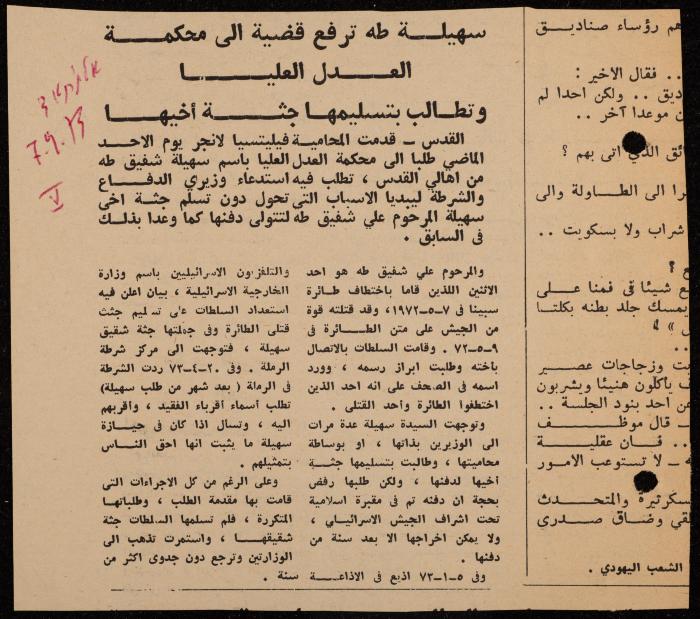 سهيلة طه ترفع قضية الى محكمة
العدل العليا
وتطالب بتسليمها جثة أخيها
القدس – قدمت المحامية فيليتسيا لانجر يوم الاحد
الماضي طلبا الى محكمة العدل العليا باسم سهيلة شفيق طه
من اهالي القدس ، تطلب فيه استدعاء وزيري الدفاع
والشرطة ليبديا الاسباب التي تحول دون تسلم جثة اخى
سهيلة المرحوم علي شفيق طه لتتولى دفنها كما وعدا بذلك
في السابق .
والمرحوم علي شفيق طه هو احد
الاثنين اللذين قاما باختطاف طائرة
سبينا في ٧-٥-١٩٧٢، وقد قتلته قوة
من الجيش على متن الطائرة في
٩-٥-٧٢. وقامت السلطات بالاتصال
باخته وطلبت ابراز رسمه ، وورد
اسمه في الصحف على انه احد الذين
اختطفوا الطائرة وأحد القتلى .
وتوجهت السيدة سهيلة عدة مرات
الى الوزيرين بذاتها ، او بوساطة
محاميتها ، وطالبت بتسليمها جثة
أخيها لدفنها ، ولكن طلبها رفض
بحجة ان دفنه تم في مقبرة اسلامية
تحت اشراف الجيش الاسرائيلي ،
ولا يمكن اخراجها الا بعد سنة من
دفنها .
وفي ٥-١-٧٣ اذيع في الاذاعة
والتلفزيون الاسرائيليين باسم وزارة
الخارجية الاسرائيلية ، بيان اعلن فيه
استعداد السلطات على تسليم جثث
قتلى الطائرة وفي جملتها جثة شقيق
سهيلة ، فتوجهت الى مركز شرطة
الرملة . وفي ٢٠-٤-٧٣ ردت الشرطة
في الرملة ( بعد شهر من طلب سهيلة)
تطلب أسماء أقرباء الفقيد ، وأقربهم
اليه ، وتسال اذا كان في حيازة
سهيلة ما يثبت انها احق الناس
بتمثيلهم .
وعلى الرغم من كل الاجراءات التي
قامت بها مقدمة الطلب ، وطلباتها
المتكررة ، فلم تسلمها السلطات جثة
شقيقها ، واستمرت تذهب الى
الوزارتين وترجع دون جدوى اكثر من
سنة .
هم رؤساء صناديق
.. فقال الاخير :
ديق .. ولكن احدا لم
ن موعدا آخر ..
ائق الذي اتى بهم ؟
را الى الطاولة والى
شراب ولا بسكويت ..
ع ؟
ع شيئا في فمنا على
يمسك جلد بطنه بكلتا
» ؟
..
بت وزجاجات عصير
ف يأكلون هنيئا ويشربون
عن احد بنود الجلسة ..
– قال موظف
.. فان عقلية
ه – لا تستوعب الامور
سكرتيرة والمتحدث
لقي وضاق صدري
الشعب اليهودي .
7.9.73
V